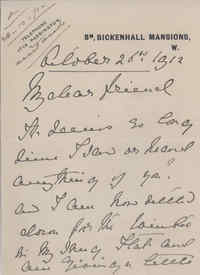 TELEPHONE
5B, BICKENHALL MANSIONS,
W.
October 26th 1912
My dear friend
It seems so long
time I saw or heard
anything of you!
and I am now settled
down for the winter
in my Flat and
am giving a little